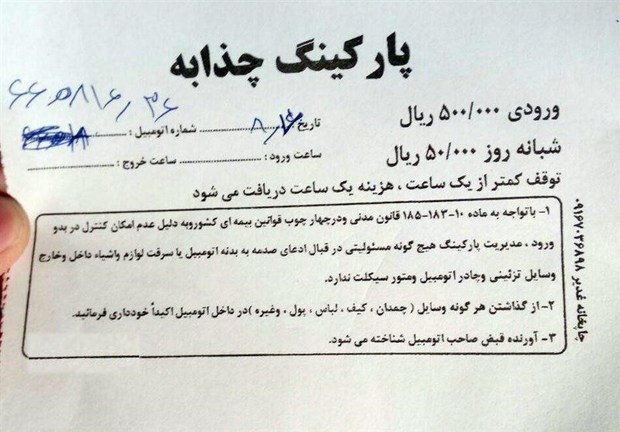 پارکینگ چذابه
ورودی ۵۰۰/۰۰۰ ریال
شبانه روز ۵۰/۰۰۰ ریال
تاریخ ۸/۶ شماره اتومبیل :
ساعت ورود : ساعت خروج :
توقف کمتر از یک ساعت ، هزینه یک ساعت دریافت می شود
۱- باتواجه به ماده ۱۰-۱۸۳-۱۸۵ قانون مدنی ودرچهار چوب قوانین بیمه ای کشوروبه دلیل عدم امکان کنترل در بدو
ورود ، مدیریت پارکینگ هیچ گونه مسئولیتی در قبال ادعای صدمه به بدنه اتومبیل یا سرقت لوازم واشیاء داخل وخارج
وسایل تزئینی وچادر اتومبیل ومتور سیکلت ندارد.
۲- از گذاشتن هر گونه وسایل ( چمدان ، کیف ، لباس ، پول ، وغیره )در داخل اتومبیل اکیداً خودداری فرمائید.
۳- آورنده قبض صاحب اتومبیل شناخته می شود.
چاپخانه غدیر ۰۹۱۶۷۰۳۶۸۹۸